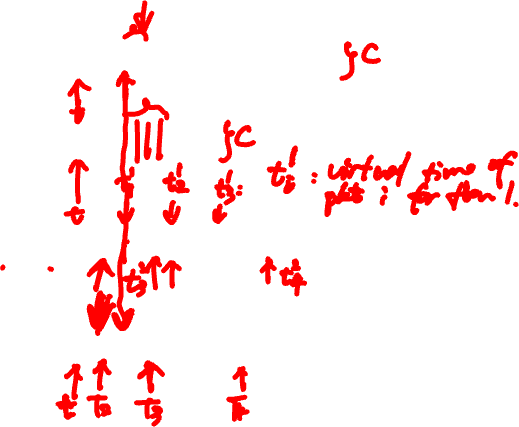 ζC
ζC
t t₁¹ t₂¹ t₃¹: tᵢ¹ : virtual time of
pkt i for flow 1.
t₃² t₄²
t T₂ T₃